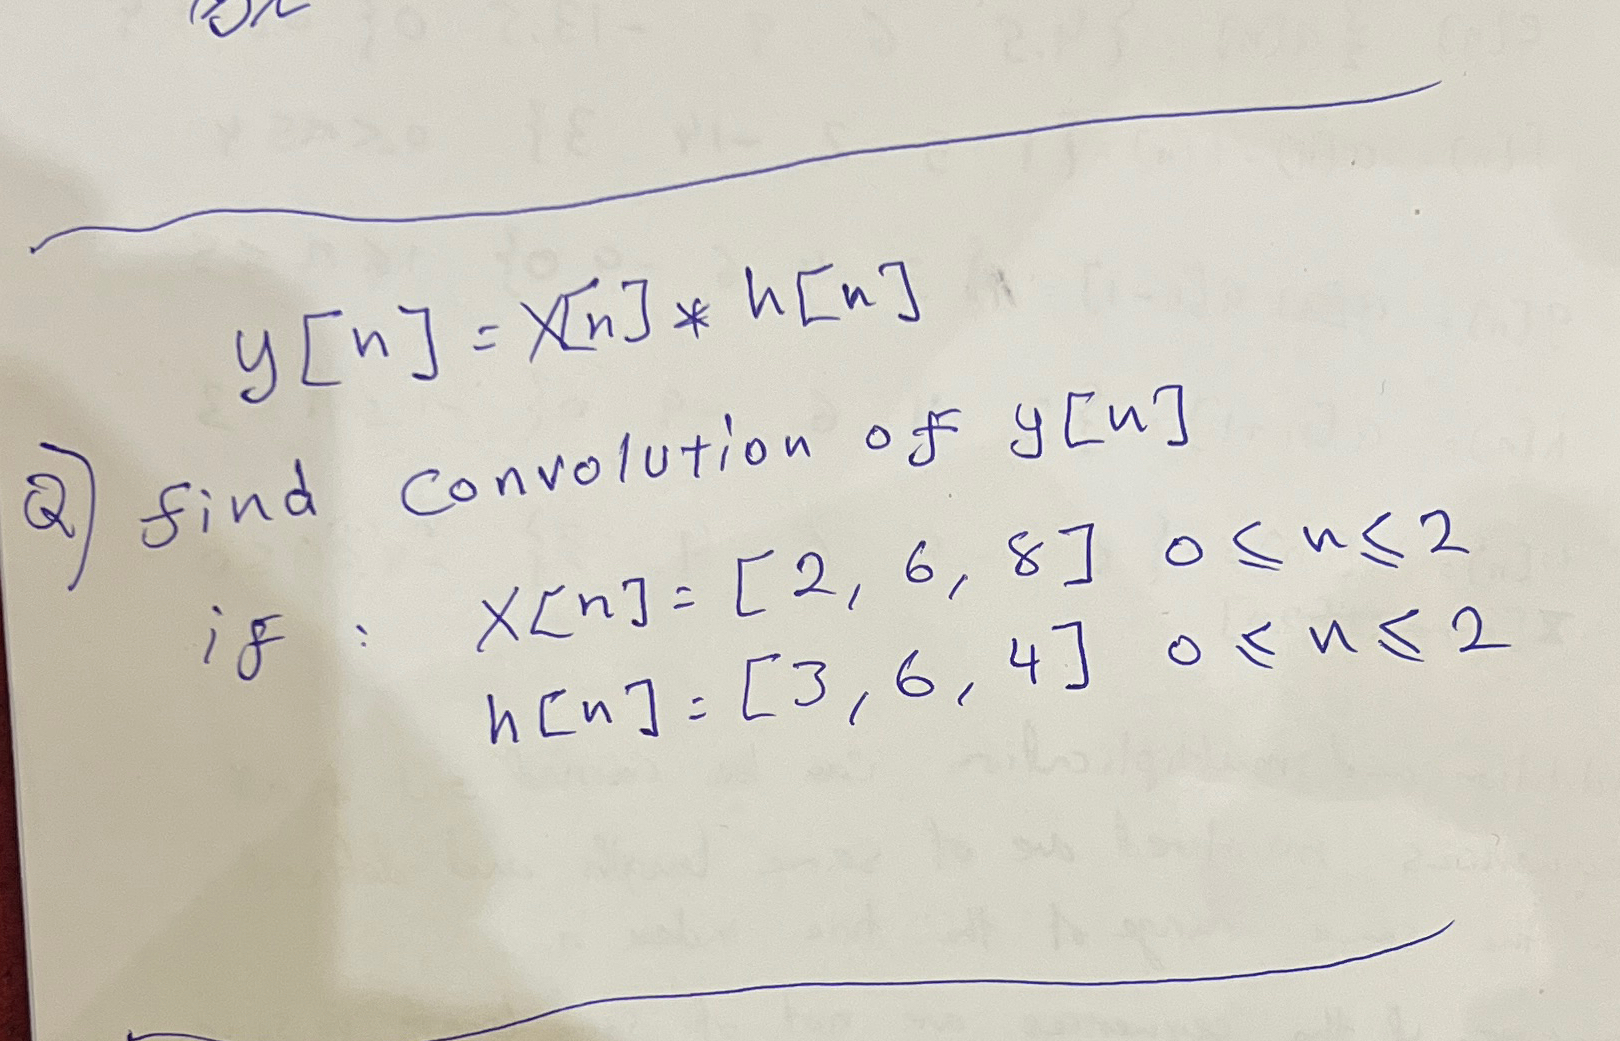 y[n] = x[n] * h[n]
Q) find convolution of y[n]
if : x[n] = [2, 6, 8] 0 ≤ n ≤ 2
h[n] = [3, 6, 4] 0 ≤ n ≤ 2